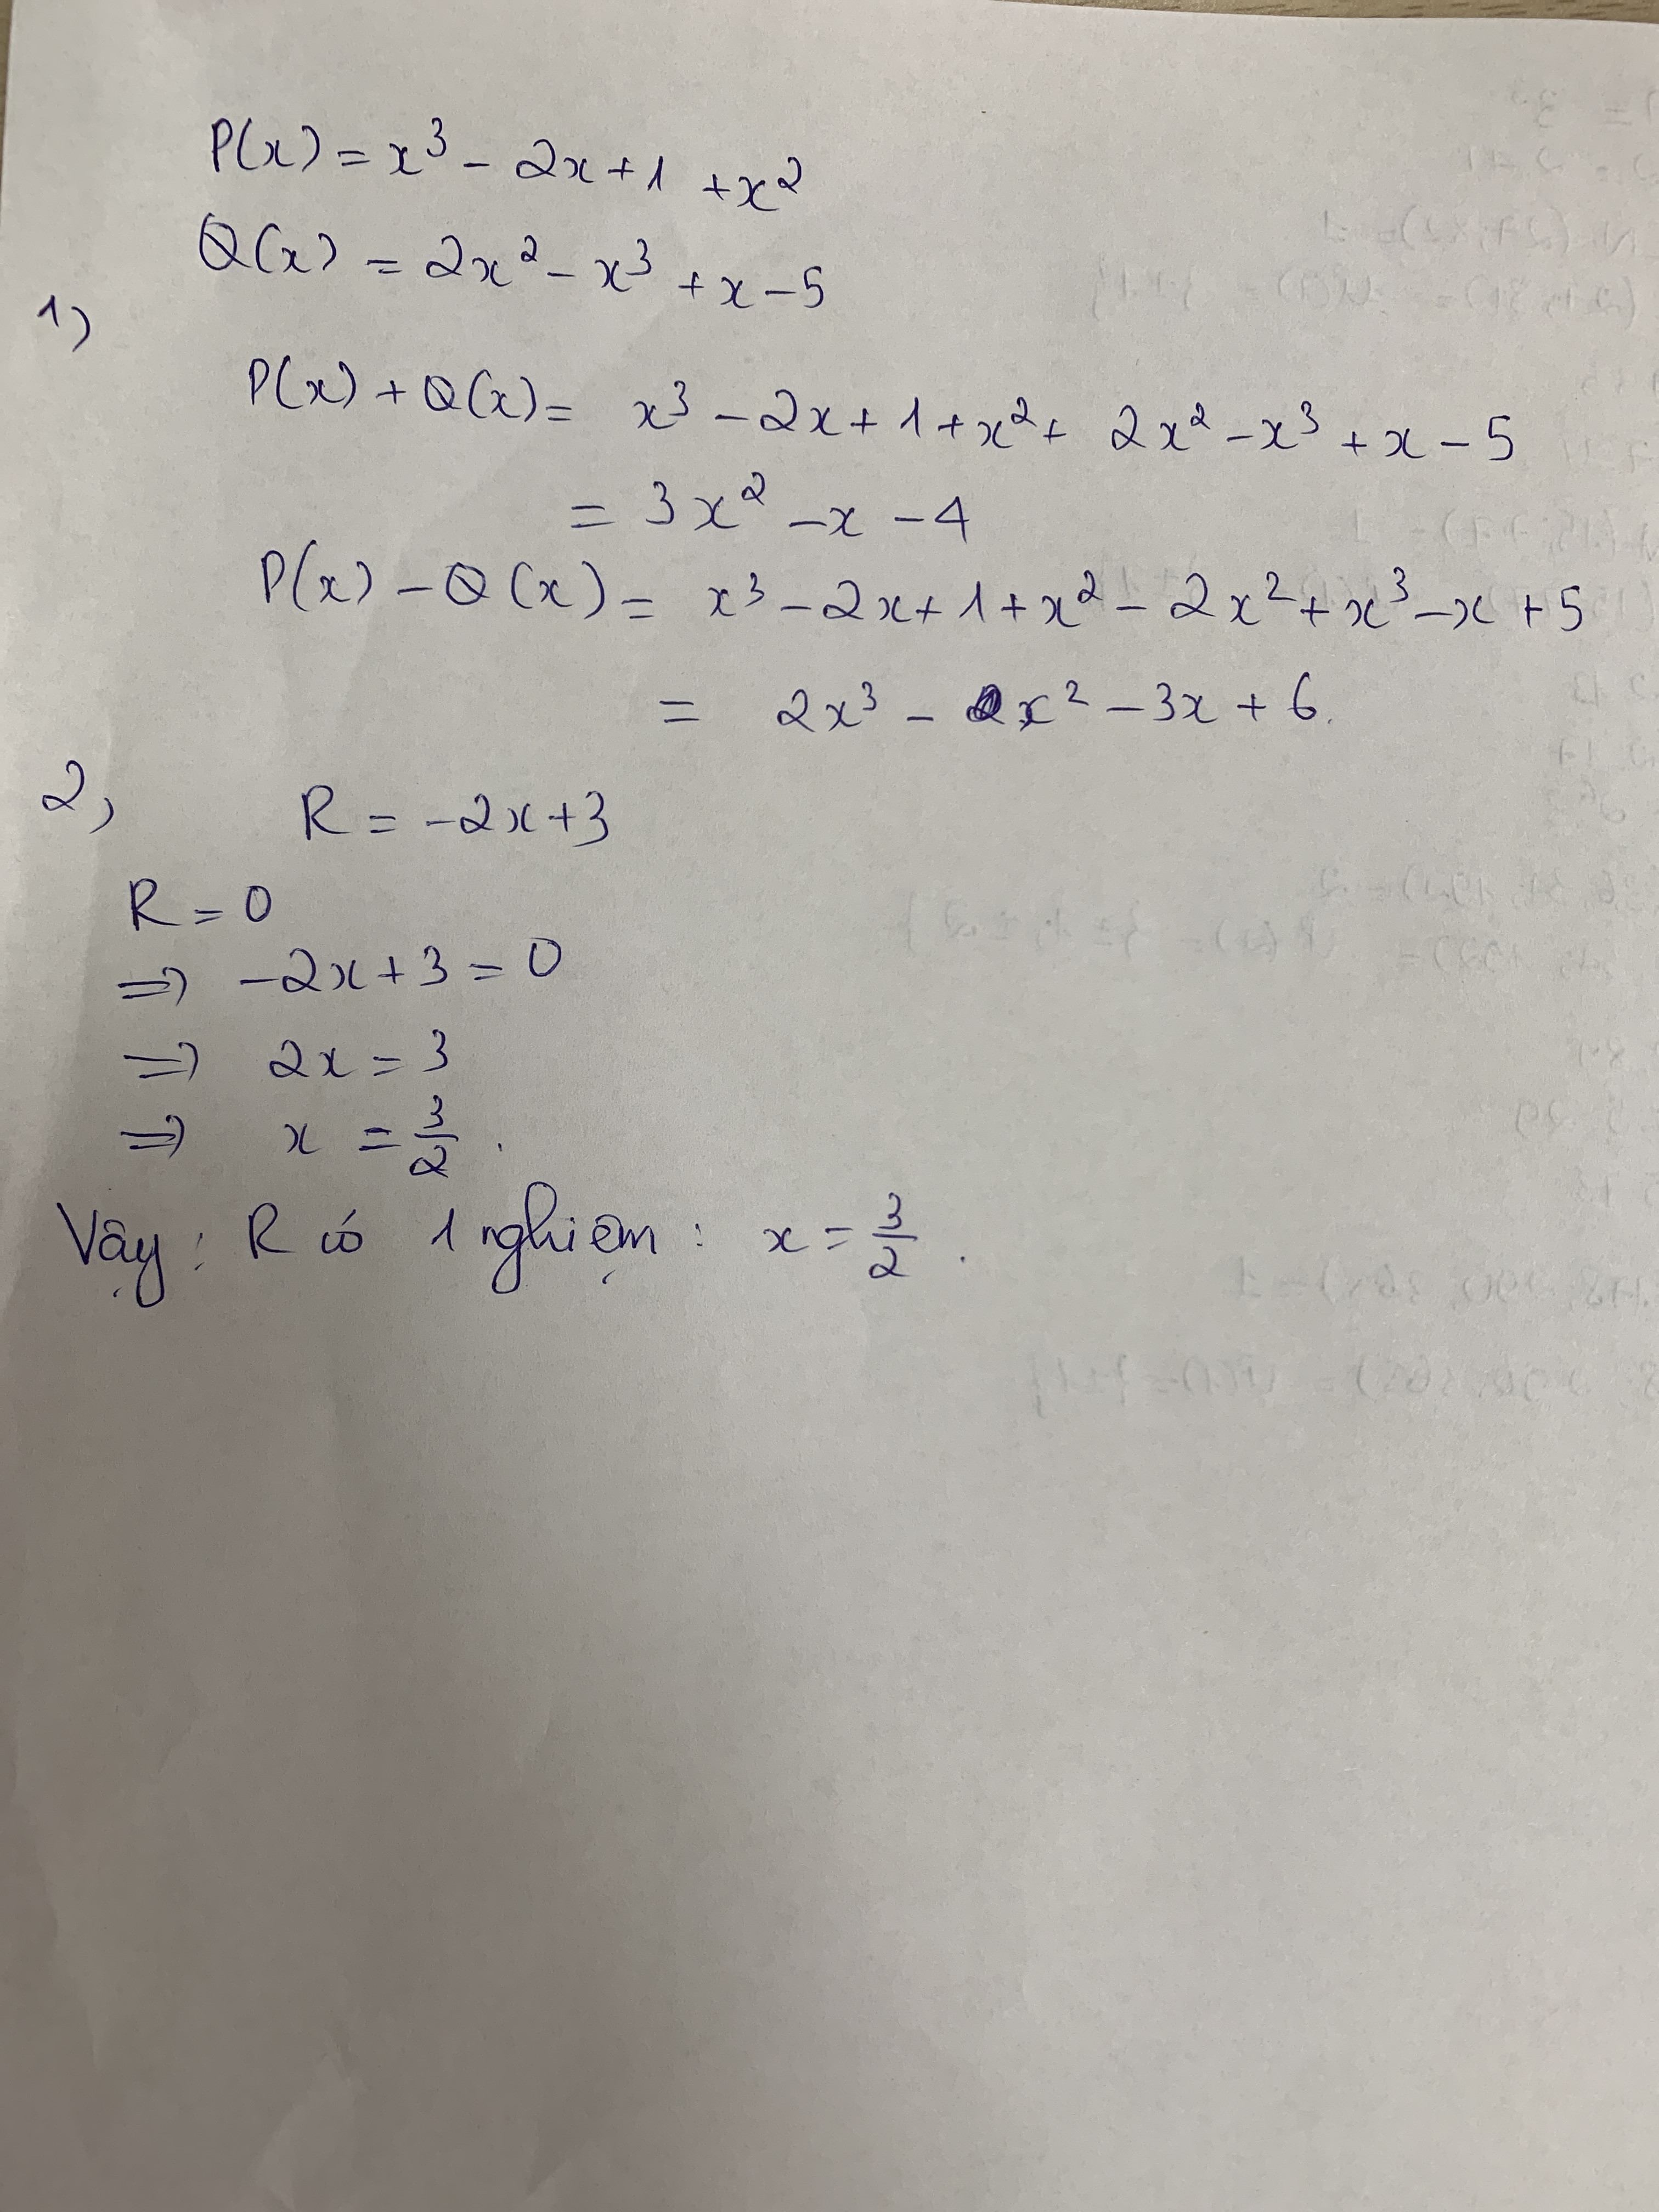 P(x) = x³ - 2x + 1 + x²
Q(x) = 2x² - x³ + x - 5
1)
P(x) + Q(x) = x³ - 2x + 1 + x² + 2x² - x³ + x - 5
= 3x² - x - 4
P(x) - Q(x) = x³ - 2x + 1 + x² - 2x² + x³ - x + 5
= 2x³ - x² - 3x + 6.
2,
R = -2x + 3
R = 0
=> -2x + 3 = 0
=> 2x = 3
=> x = 3/2.
Vậy: R có 1 nghiệm: x = 3/2.